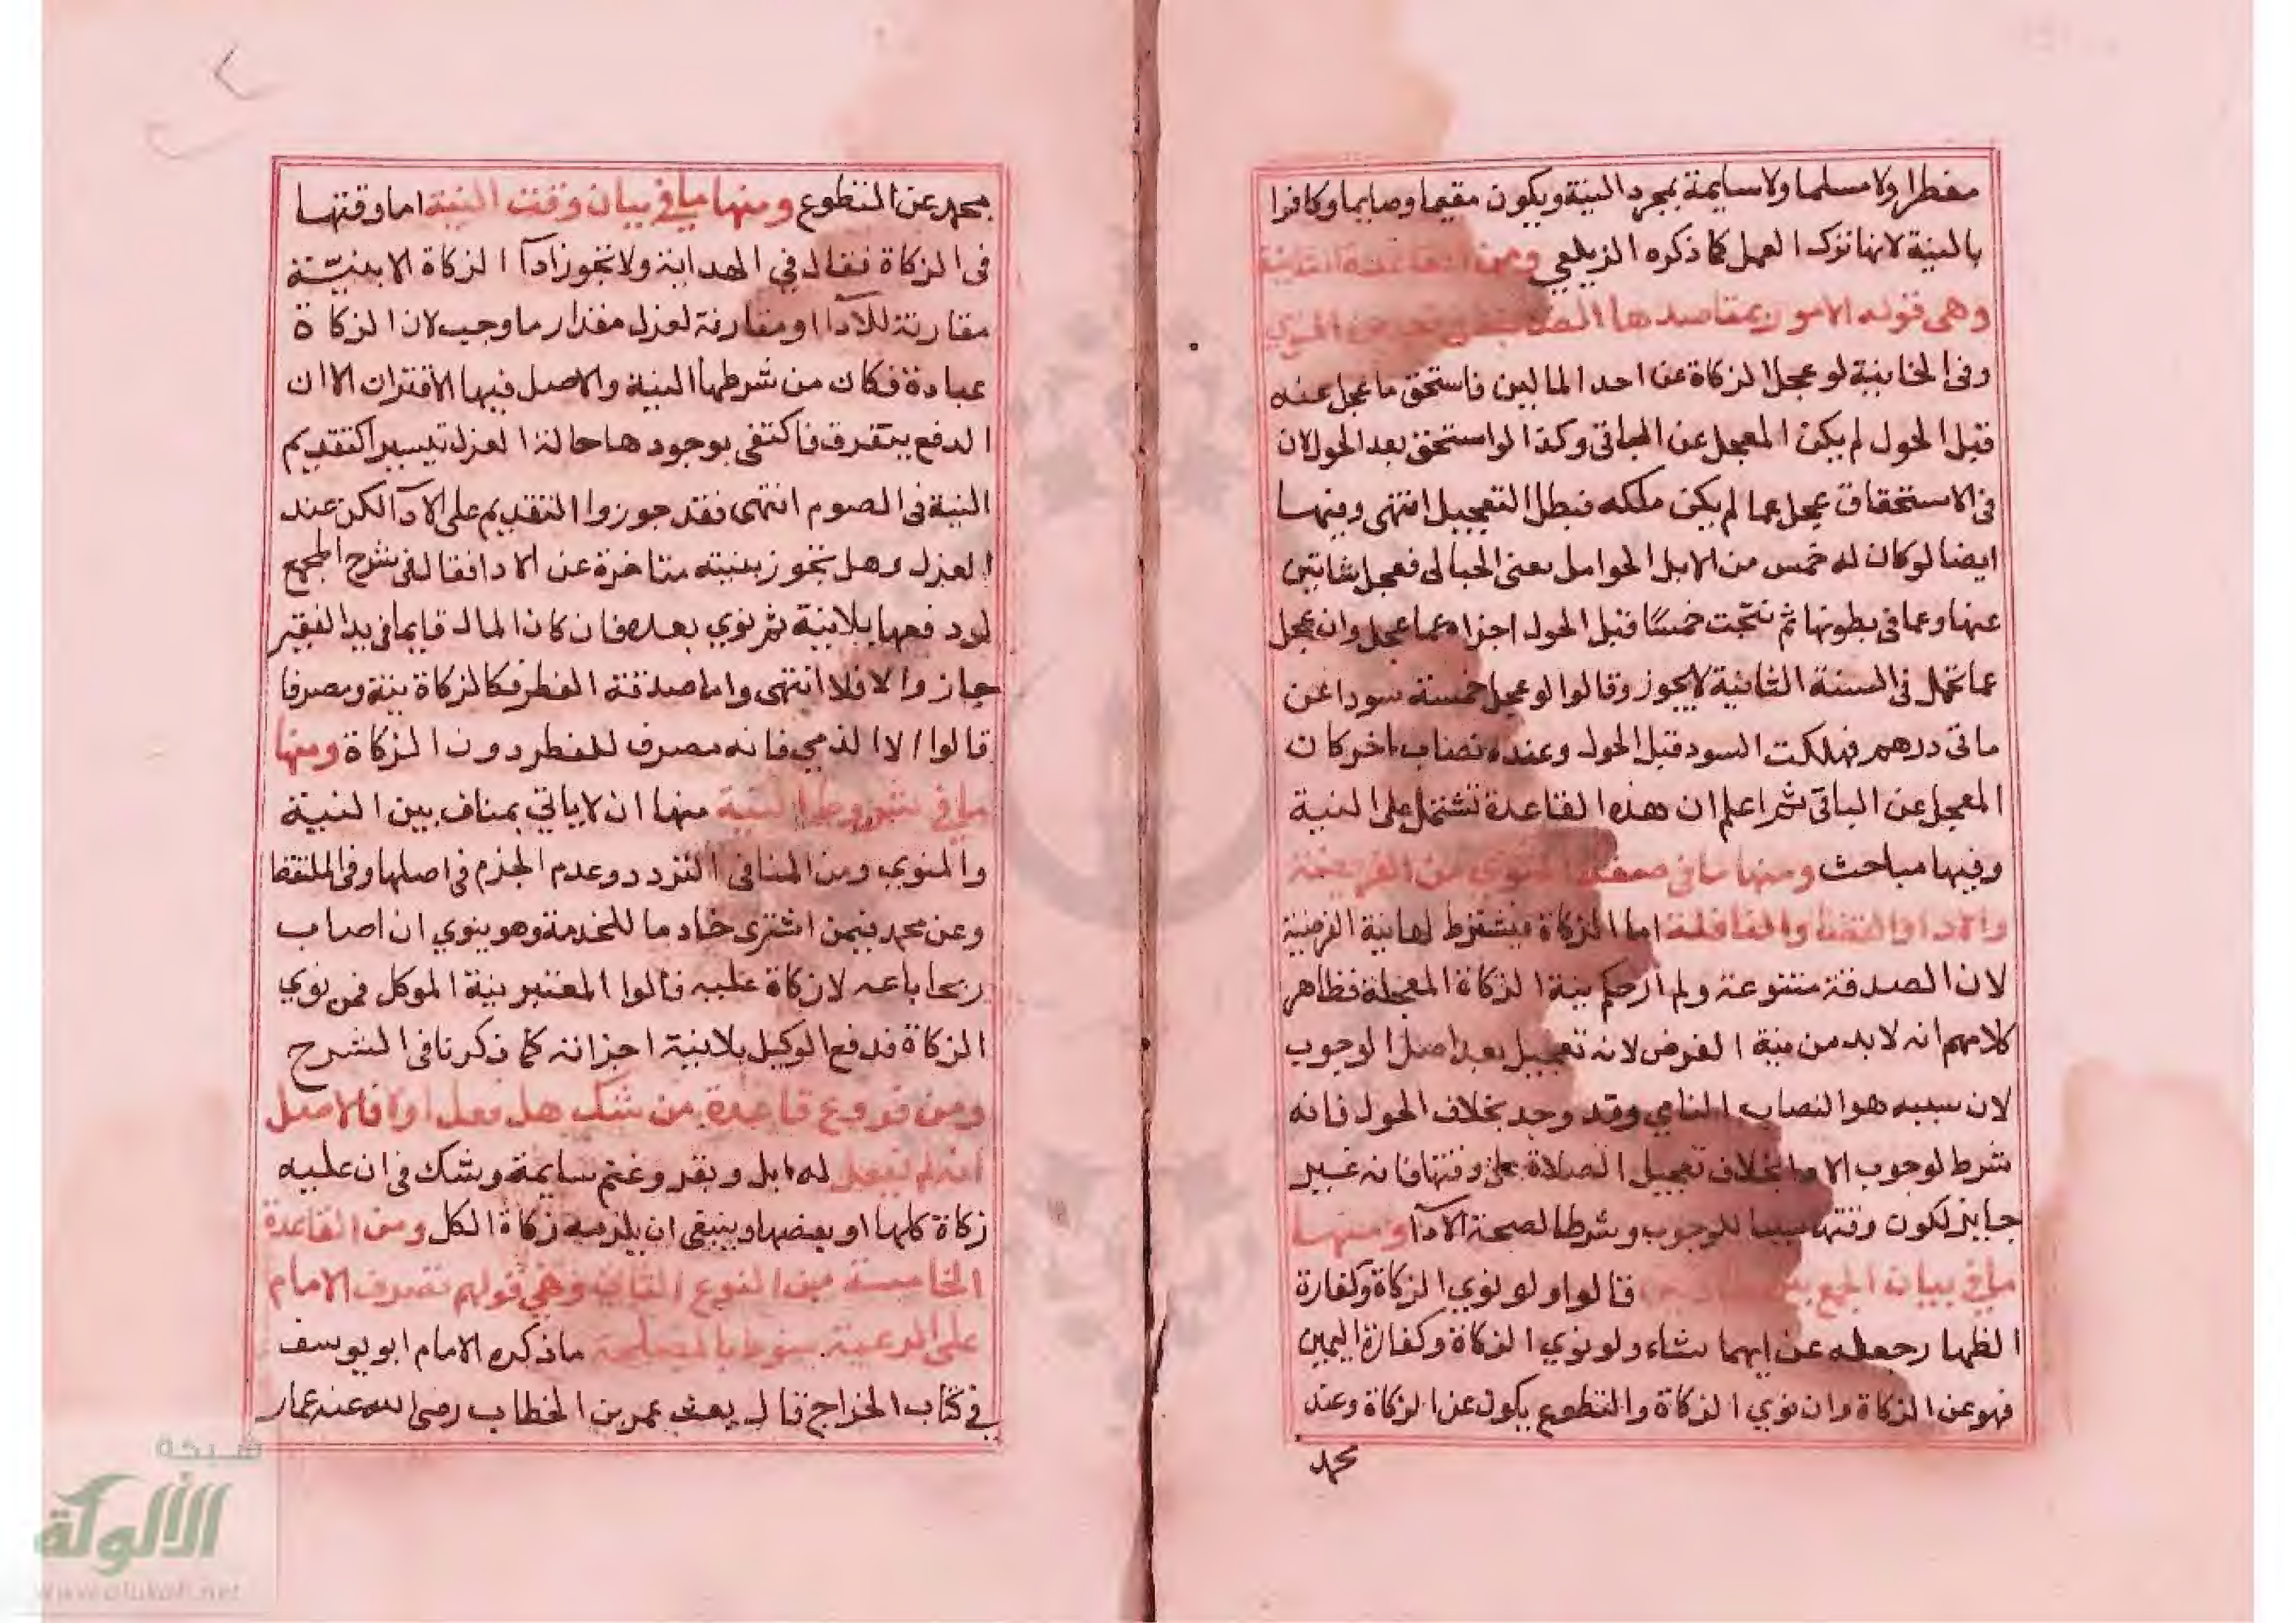 مفطرا ولا مسلما ولا سايمة بمجرد النية ويكون مقيما وصايما وكافرا
بالنية لانها ترك العمل كما ذكره الزيلعي ومن القاعدة الثانية
وهي قوله الامور بمقاصدها
وفي الخانية لو عجل الزكاة عن احد المالين فاستحق ما عجل عنه
قبل الحول لم يكن المعجل عن الباقي وكذا لو استحق بعد الحول لان
في الاستحقاق عجل عما لم يكن ملكه فبطل التعجيل انتهى وفيها
ايضا لو كان له خمس من الابل الحوامل يعني الحبالى فعجل شاتين
عنها وعما في بطونها ثم نتجت خمسا قبل الحول اجزاه عما عجل وان عجل
عما تحمل في السنة الثانية لا يجوز وقالوا لو عجل خمسة سودا عن
ماتي درهم فهلكت السود قبل الحول وعنده نصاب اخر كان
المعجل عن الباقي ثم اعلم ان هذه القاعدة تشتمل على النية
وفيها مباحث ومنها ما في صفة المنوي من الفريضة
والادا والقضا والنافلة اما الزكاة فيشترط لها نية الفرضية
لان الصدقة متنوعة ولم ار حكم نية الزكاة المعجلة فظاهر
كلامهم انه لا بد من نية الفرض لانه تعجيل بعد اصل الوجوب
لان سببه هو النصاب النامي وقد وجد بخلاف الحول فانه
شرط لوجوب الادا بخلاف تعجيل الصلاة على وقتها فانه غير
جايز لكون وقتها سببا للوجوب وشرطا لصحة الادآ ومنها
ما في بيان الجمع بين قالوا ولو نوي الزكاة وكفارة
الظهار جعله عن ايهما شاء ولو نوي الزكاة وكفارة اليمين
فهو عن الزكاة وان نوي الزكاة والتطوع يكون عن الزكاة وعند
محمد
محمد عن التطوع ومنها ما في بيان وقت النية اما وقتها
في الزكاة فقال في الهداية ولا تجوز ادآ الزكاة الا بنيّة
مقارنة للادآ او مقارنة لعزل مقدار ما وجب لان الزكاة
عبادة فكان من شرطها النية والاصل فيها الاقتران الا ان
الدفع يتفرق فاكتفى بوجودها حالة العزل تيسيرا كتقديم
النية في الصوم انتهى فقد جوزوا التقديم على الادآ لكن عند
العزل وهل تجوز بنية متاخرة عن الادا فقال في شرح المجمع
لو دفعها بلا نية ثم نوي بعده فان كان المال قايما في يد الفقير
جاز والا فلا انتهى واما صدقة الفطر فكالزكاة نية ومصرفا
قالوا الا الذمي فانه مصرف للفطر دون الزكاة ومنها
ما في شروط النية منها ان لا ياتي بمناف بين النية
والمنوي ومن المنافي التردد وعدم الجزم في اصلها وفي الملتقط
وعن محمد فيمن اشترى خادما للخدمة وهو ينوي ان اصاب
ربحا باعه لا زكاة عليه قالوا المعتبر نية الموكل فمن نوي
الزكاة فدفع الوكيل بلا نية اجزاته كما ذكرنا في الشرح
ومن فروع قاعدة من شك هل فعل اولا فالاصل
انه لم يفعل له ابل وبقر وغنم سايمة وشك في ان عليه
زكاة كلها او بعضها وينبغي ان يلزمه زكاة الكل ومن القاعدة
الخامسة من النوع الثاني وهي قولهم تصرف الامام
على الرعية منوط بالمصلحة ما ذكره الامام ابو يوسف
في كتاب الخراج قال بعث عمر بن الخطاب رضي الله عنه عمار
شبكة
الألوكة
www.alukah.net